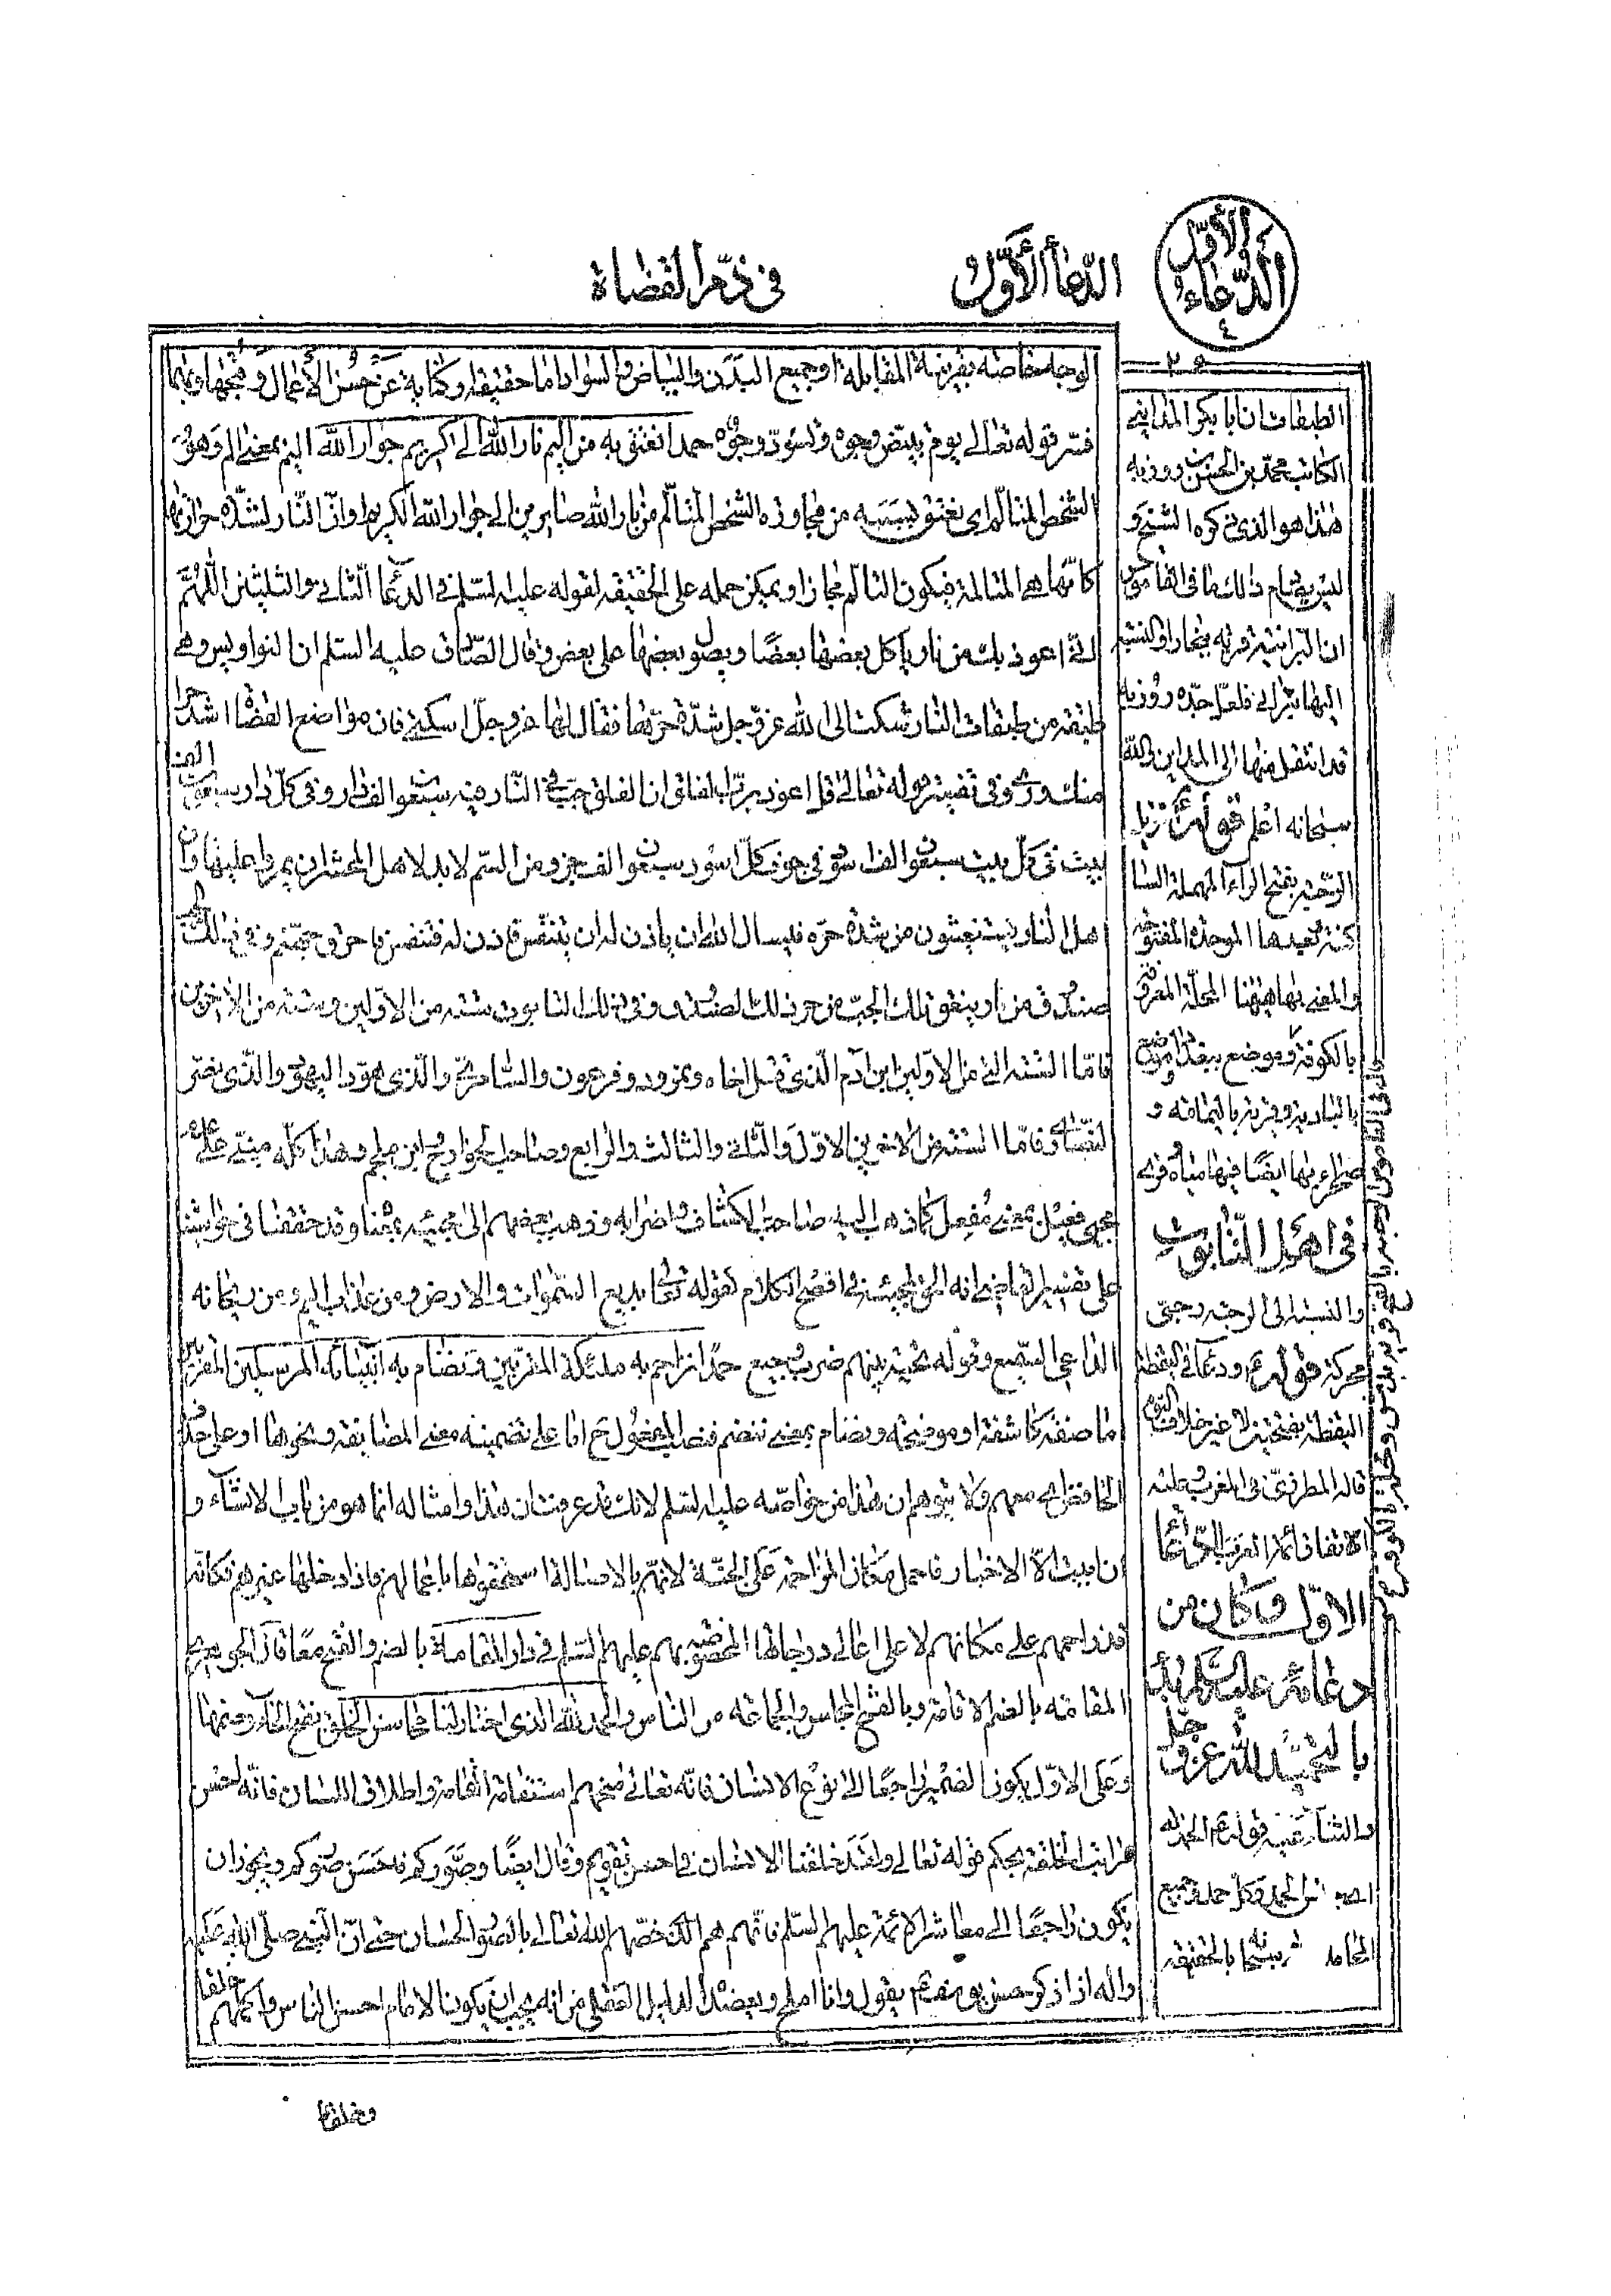 الدعاء الأول
٤
الدعاء الأول
في ذم القضاة
الوجه خاصة بقرينة المقابلة او جميع البدن والبياض والسواد اما حقيقة او كناية عن حسن الأعمال وقبحها وبهما
فسر قوله تعالى يوم تبيض وجوه وتسود وجوه حمدا نعتق به من اليم نار الله الى كريم جوار الله اليم بمعنى المؤلم وهو
الشخص المتألم اي نعتق بسببه من مجاورة الشخص المتألم من نار الله صايرين الى جوار الله الكريم او ان النار لشدة حرارتها
كانها هي المتالمة فيكون التالم مجازا ويمكن حمله على الحقيقة لقوله عليه السلم في الدعاء الثاني والثلثين اللهم
اني اعوذ بك من نار ياكل بعضها بعضا ويصول بعضها على بعض وقال الصادق عليه السلم ان النواويس وهي
طبقة من طبقات النار شكت الى الله عز وجل شدة حرها فقال لها عز وجل اسكني فان مواضع القضاة اشد حرا
منك وروي في تفسير قوله تعالى قل اعوذ برب الفلق ان الفلق جب في النار فيه سبعون الف دار وفي كل دار سبعون الف
بيت في كل بيت سبعون الف اسود في جوف كل اسود سبعون الف جزو من السم لا بد لاهل المحشر ان يمروا عليها وان
اهل النار يستغيثون من شدة حره فيسال الله ان ياذن له ان يتنفس فاذن له فتنفس فاحرق جهنم وفي ذلك الجب
صندوق من نار يتعوذ تلك الجب من حر ذلك الصندوق وفي ذلك التابوت ستة من الاولين وستة من الاخرين
فاما الستة التي من الاولين ابن آدم الذي قتل اخاه ونمرود وفرعون والسامري والذي هود اليهود والذي نصر
النصارى فاما الستة من الاخرين الاول والثاني والثالث والرابع وصاحب الخوارج ابن ملجم وهذا كله مبني على
مجيئ فعيل بمعنى مفعل كما ذهب اليه صاحب الكشاف واضرابه وذهب بعضهم الى مجيئه بمعنا وقد حققنا في حواشينا
على تفسير القاضي انه الحق لمجيئه في افصح الكلام كقوله تعالى بديع السموات والارض ومن عذاب اليم ومن ريحانة
الداعي السميع وقوله تحية بينهم ضرب وجيع حمدا نزاحم به ملئكة المقربين ونضام به انبيائه المرسلين المقربين
اما صفة كاشفة او موضحة ونضام بمعنى ننضم فنصب المفعول ح اما على تضمينه معنى المضايقة ونحوها او على حذف
الخافض اي معهم ولا يتوهم ان هذا من خواصه عليه السلم لانك قد عرفت ان هذا وامثاله انما هو من باب الانشاء و
ان ابيت الا الاخبار فاحمل مكان المزاحمة على الجنة لانهم بالاصالة استحقوها باعمالهم فاذا دخلها غيرهم فكانه
قد زاحمهم على مكانهم لا على اعالي درجاتها المخصوصة بهم عليهم السلم في دار المقامة بالضم والفتح معا قال الجوهري
المقامة بالضم الاقامة وبالفتح المجلس والجماعة من الناس والحمد لله الذي اختار لنا محاسن الخلق بفتح الخاء وضمها
وعلى الاول يكون الضمير راجعا الى نوع الانسان فانه تعالى منحهم استقامة القامة واطلاق اللسان فانه احسن
مراتب الخلقة بحكم قوله تعالى ولقد خلقنا الانسان في احسن تقويم وقال ايضا وصوركم فاحسن صوركم ويجوز ان
يكون راجعا الى معاشر الائمة عليهم السلم فانهم هم الذين خصهم الله تعالى بالصور الحسان حتى ان النبي صلى الله عليه
واله اذا ذكر حسن يوسف ع يقول وانا املح ويعضده الدليل العقلي من انه يجب ان يكون الامام احسن الناس واكملهم خلقا
الطبقات ان ابا بكر المدايني
الكاتب محمد بن الحسن بن روزبه
هذا هو الذي ذكره الشيخ و
ليس يتام ذلك ما في القاموس
ان البرانية قرية ببخارا والنسبة
اليها براني فلعل جده روزبه
قد انتقل منها الى المداين والله
سبحانه اعلم قوله نزيل
الرحبة بفتح الراء المهملة السا
كنة بعدها الموحدة المفتوحة
والمعنى بها ههنا المحلة المعروفة
بالكوفة وموضع ببغداد وموضع
بالبادية وقرية باليمامة و
صحراء بها ايضا فيها مياه وقرى
في اهل التابوت
والنسبة الى الرحبة رحبي
محركة قوله ع ودعائي اليقظة
اليقظة بفتحتين لا غير خلاف النوم
قاله المطرزي في المغرب وعليه
الاتفاق ائمة العرب الدعاء
الاول وكان من
دعائه عليه السلم اذا ابتدأ
بالتحميد لله عز وجل
والثناء عليه قوله ع الحمد لله
اي جنس الحمد وكل حمد وجميع
المحامد بالحقيقة
وخلقا